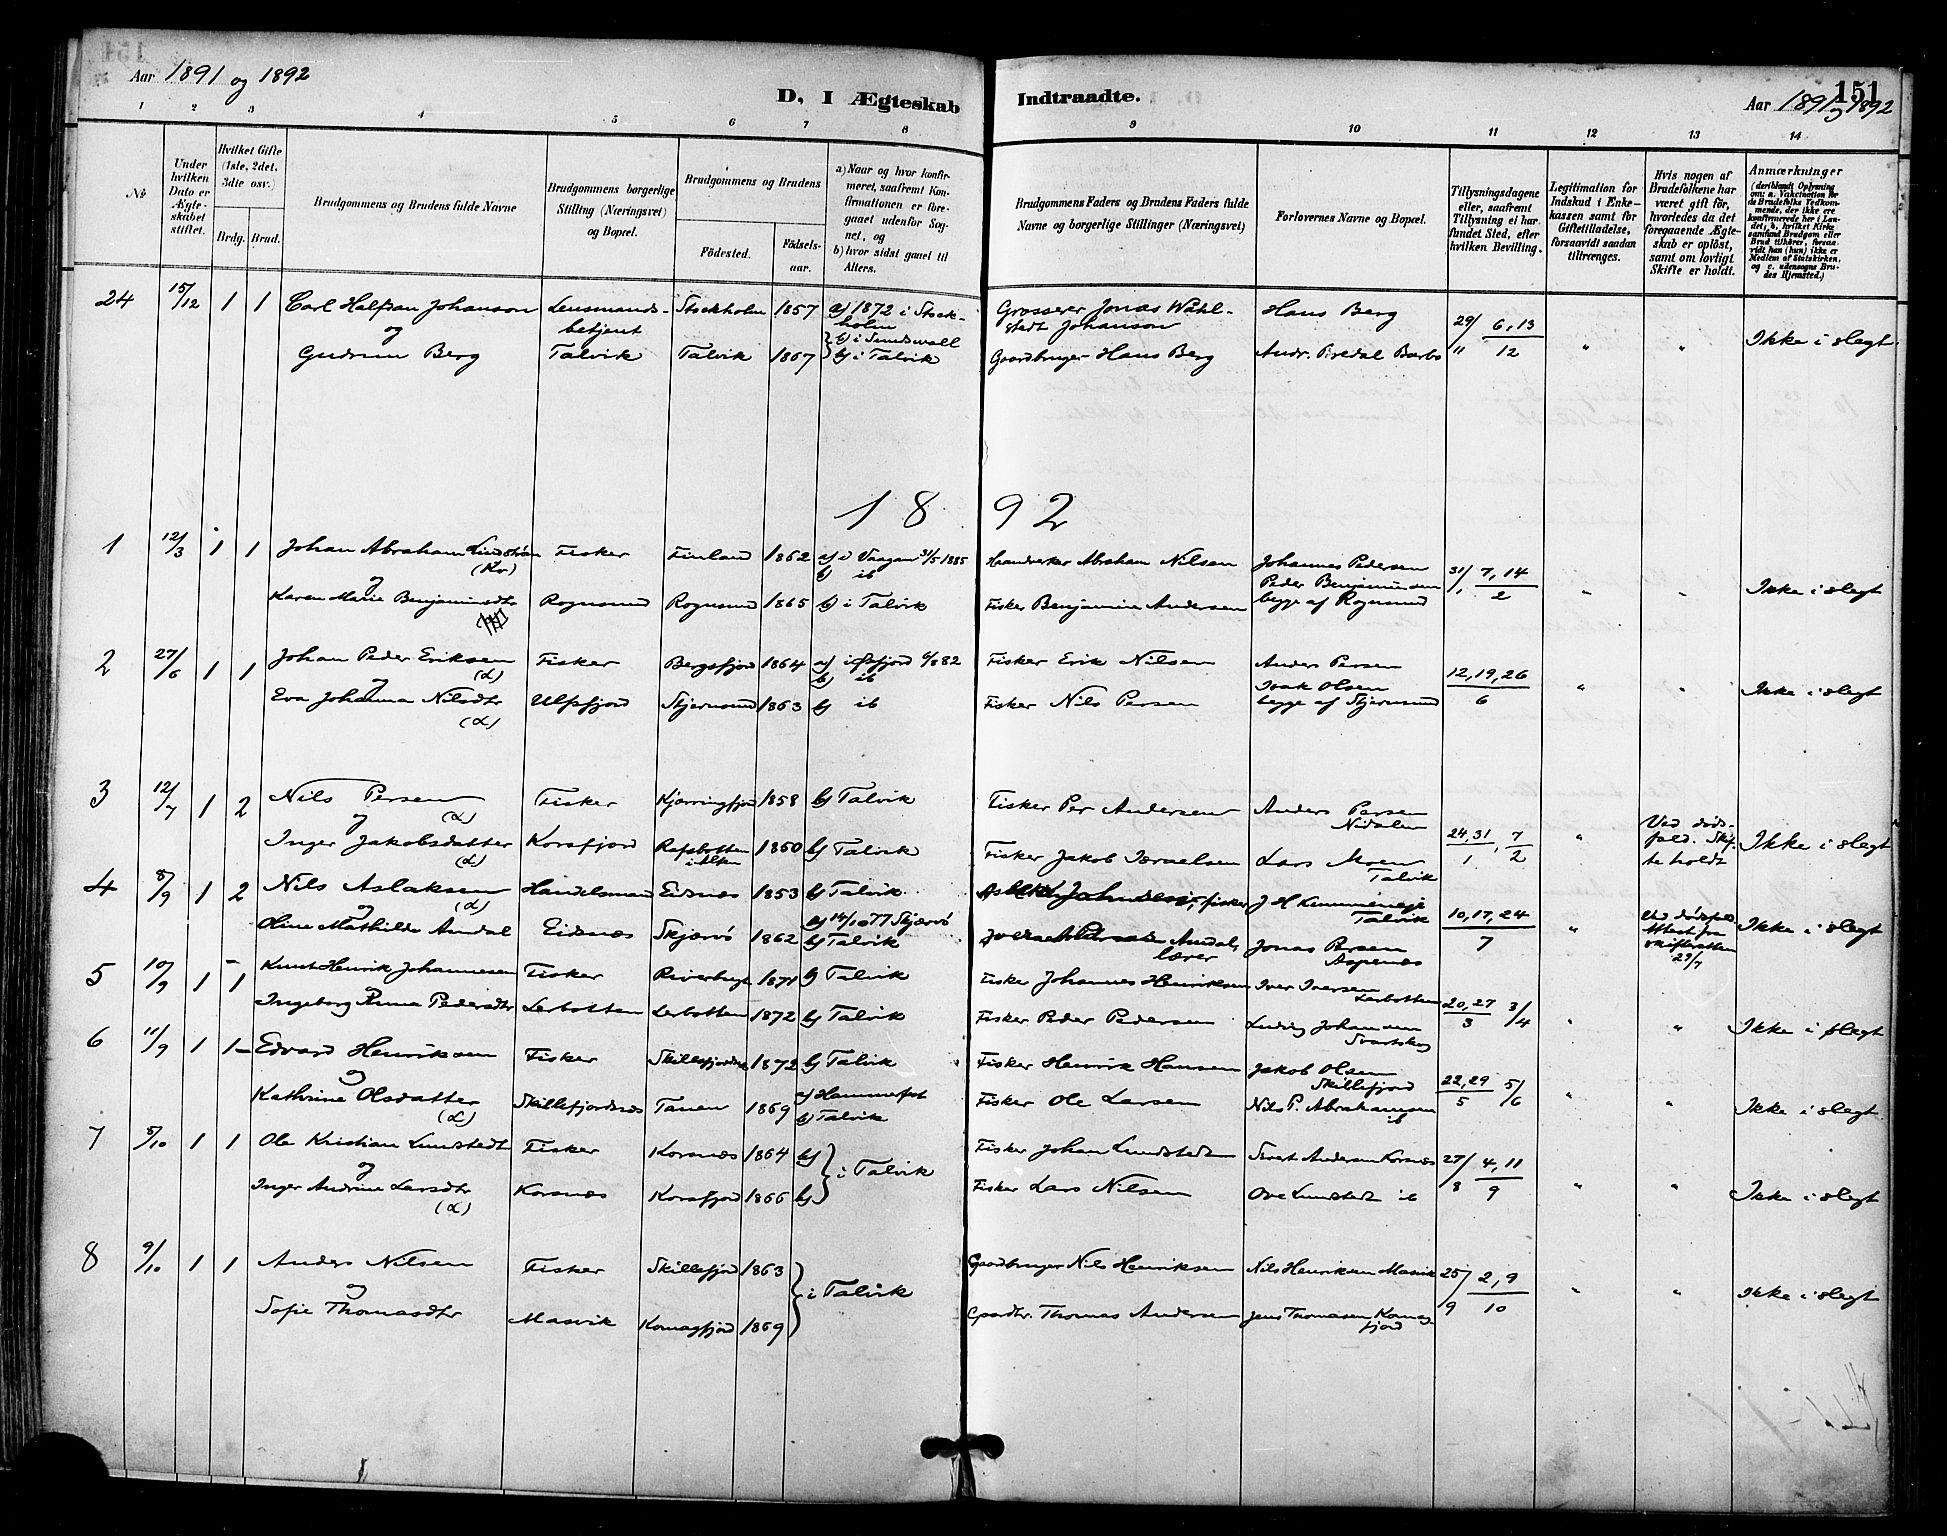 Aar 1891 og 1892
D, I Ægteskab Indtraadte.
151
Aar 1891 og 1892
1 2 3 4 5 6 7 8 9 10 11 12 13 14
No
Under hvilken Dato er Ægteskabet stiftet.
Hvilket Gifte (1ste, 2det, 3die osv.)
Brdg. Brud.
Brudgommens og Brudens fulde Navne
Brudgommens borgerlige Stilling (Næringsvei) og Bopæl.
Brudgommens og Brudens
Födested. Födselsaar.
a) Naar og hvor konfirmeret, saafremt Konfirmationen er foregaaet udenför Sognet, og
b) hvor sidst gaaet til Alters.
Brudgommens Faders og Brudens Faders fulde Navne og borgerlige Stillinger (Næringsvei)
Forlovernes Navne og Bopæl.
Tillysningsdagene eller, saafremt Tillysning ei har fundet Sted, efter hvilken Bevilling.
Legitimation for Indskud i Enkekassen samt for Giftetilladelse, forsaavidt saadan tiltrænges.
Hvis nogen af Brudefolkene har været gift för, hvorledes da det foregaaende Ægteskab er oplöst, samt om lovligt Skifte er holdt.
Anmærkninger
(deriblandt Oplysning om: a. Vakcination for de Brudefolks Vedkommende, der ikke ere konfirmerede her i Landet; b. hvilket Kirkesamfund Brudgom eller Brud tilhörer, forsaavidt han (hun) ikke er Medlem af Statskirken, og c. udensogns Brudes Hjemsted.)
24 15/12 1 1 Carl Halfdan Johanson Lensmands- Stockholm 1857 a) 1872 i Stock- Grosserer Jonas Wåhl- Hans Berg 29/11 6,13/12 " " Ikke i slegt
og betjent holm b) i Sundsvall stedt Johanson
Gudrun Berg Talvik Talvik 1867 b) i Talvik Gaardbruger Hans Berg Andr. Buedal Barbo
1892
1 12/3 1 1 Johan Abraham Lindström Fisker Finland 1862 a) i Vaagan 31/5 1885 Haandverker Abraham Nilsen Johannes Pedersen 31/1 7,14/2 " " Ikke i slegt
(Kv) b) ib Peder Benjaminsen
og
Karen Marie Benjaminsdtr Rognsund Rognsund 1865 b) i Talvik Fisker Benjamin Andersen begge af Rognsund
2 27/6 1 1 Johan Peder Eriksen Fisker Bergsfjord 1864 a) i Øxfjord 6/8 82 Fisker Erik Nilsen Anders Persen 12,19,26/6 " " Ikke i slegt
(L) b) ib Isak Olsen
og
Eva Johanna Nilsdtr Ulfsfjord Stjernsund 1863 b) ib Fisker Nils Persen begge af Stjernsund
(L)
3 12/7 1 2 Nils Persen Fisker Kjærringfjord 1858 b) Talvik Fisker Per Andersen Anders Persen 24,31/1, 7/2 " Ved døds- Ikke i slegt
(L) Nidalen fald. Skif-
og
Inger Jakobsdatter Korsfjord Rafsbotten 1850 b) Talvik Fisker Jakob Israelsen Lars Moen te holdt
(L) i Alten Talvik
4 8/9 1 2 Nils Aslaksen Handelsmand Eidsnæs 1853 b) Talvik fisker 10,17,24/7 " Ved dødsfald Ikke i slegt
(L) Talvik Attest fra
og a) 14/10 77 Skjærvö
Oline Mathilde Amdal Eidsnæs Skjærvö 1862 b) Talvik Amdal, Jonas Persen skifteretten
lærer Aspenæs 29/7
5 10/9 1 1 Knut Henrik Johannesen Fisker 1871 b) Talvik Fisker Johannes Henriksen Iver Iversen 20,27/3 3/4 " " Ikke i slegt
Lerbotten
Ingeborg Anna Pedersdtr Lerbotten Lerbotten 1872 b) Talvik Fisker Peder Pedersen Ludvig Johansen
Svartskog
6 11/9 1 1 Edvard Henriksen Fisker Skillefjordnæs 1872 b) Talvik Fisker Henrik Hansen Jakob Olsen 22,29/5 5/6 " " Ikke i slegt
og Skillefjord
Kathrine Olsdatter Skillefjordnæs Tanen 1869 a) Hammerfest Fisker Ole Larsen Nils P. Abrahamsen
(L) b) Talvik ib
7 8/10 1 1 Ole Kristian Lundstedt Fisker Korsnæs 1864 b) Fisker Johan Lundstedt Sivert Andersen Korsnæs 27/8 4,11/9 " " Ikke i slegt
og i Talvik
Inger Andrine Larsdtr Korsnæs Korsfjord 1866 b) Fisker Lars Nilsen Ove Lundstedt ib
(L)
8 9/10 1 1 Anders Nilsen Fisker Skillefjord 1863 Gaardbruger Nils Henriksen Nils Henriksen Masvik 25/9 2,9/10 " " Ikke i slegt
og i Talvik
Sofie Thomasdtr Masvik Komagfjord 1869 Gaardbr. Thomas Andersen Jens Thomasen Komag-
fjord